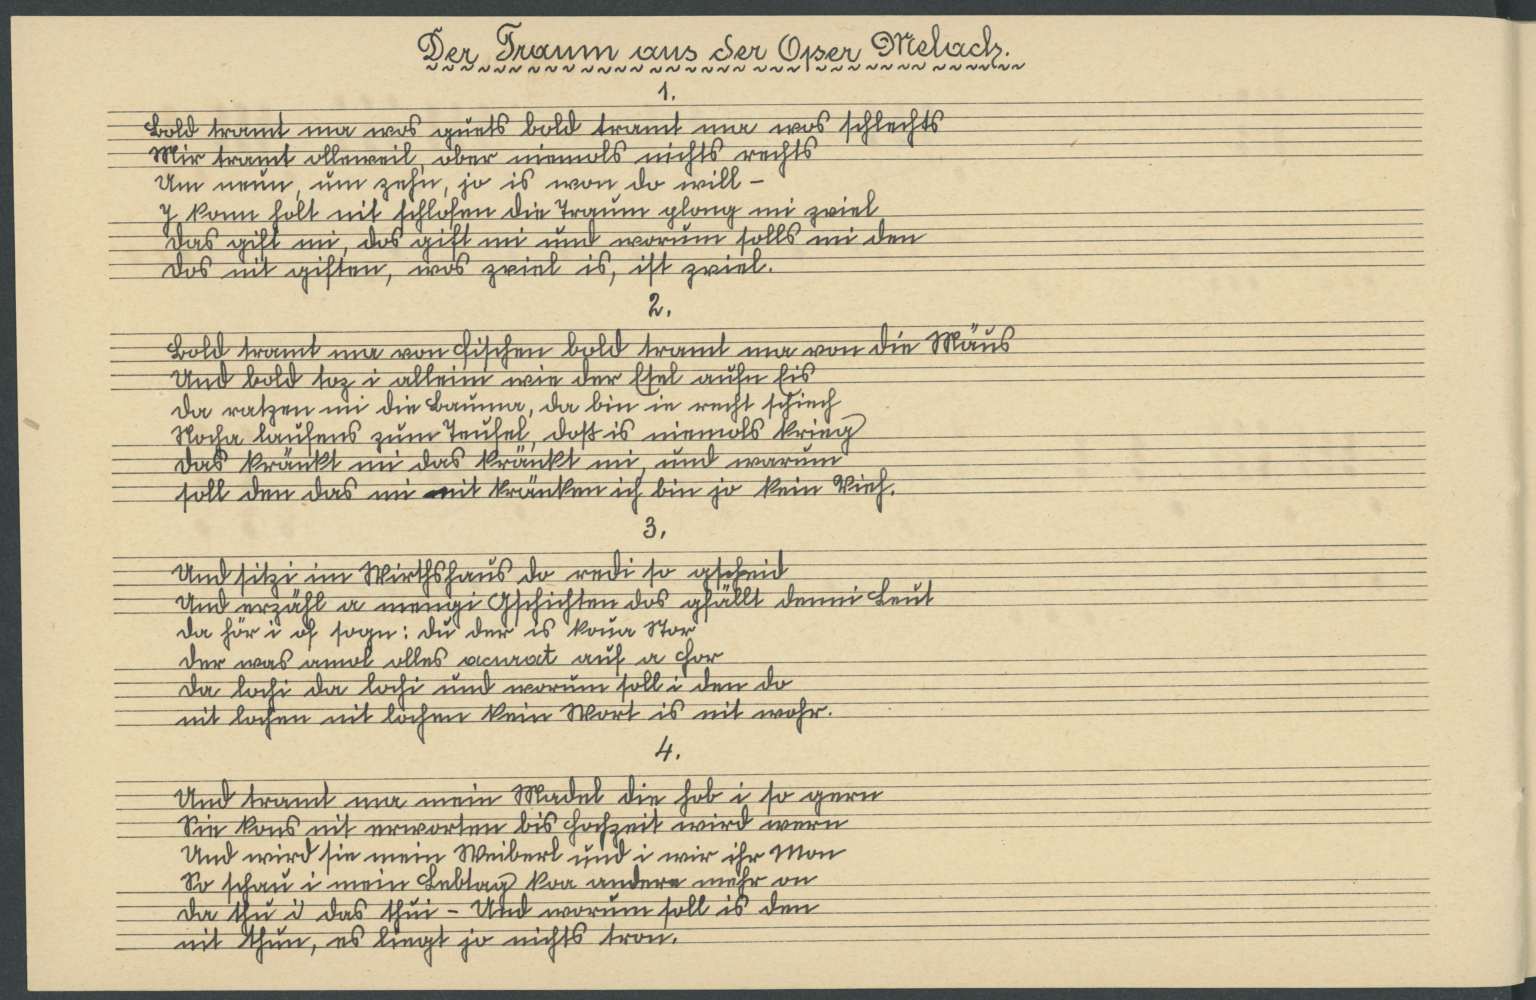 Der Traum aus der Oper Melach.
1.
Bold tramt ma wos guets bold tramt ma wos schlechts
Mir tramt olleweil, ober niemols nichts rechts
Um neun, um zehn, jo is won do will –
I konn holt nit schlofen die Traum plong mi zviel
Das gift mi, dos gift mi und worum solls mi den
Dos nit giften, wos zviel is, ist zviel.
2.
Bold tramt ma von Fischen bold tramt ma von die Mäus
Und bold toz i alleim wie der Esel aufn Eis
Da ratzen mi die Bauma, da bin ie recht schiech
Nocha laufens zum Teufel, doß is niemols krieg
Das kränkt mi das kränkt mi, und warum
soll den das mi nit kränken ich bin jo kein Vieh.
3.
Und sitzi im Wirthshaus do redi so gscheid
Und erzähl a mengi Gschichten dos gfällt denni Leut
Da hör i of sogn: du der is koua Stor
Der was amol olles auf a Hor
Da lochi da lochi und worum soll i den do
nit lochen nit lochen kein Wort is nit wohr.
4.
Und tramt ma mein Madel die hob i so gern
Sie kons nit erworten bis Hochzeit wird wern
Und wird sie mein Weiberl und i wir ihr Mon
So schau i mein Lebtag koa andere mehr on
Da thu i das thui – Und worum soll is den
nit thun, es liegt jo nichts tron.